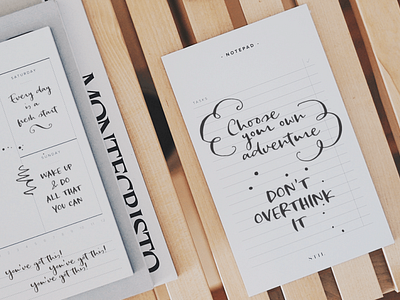 SATURDAY
Every day
is a
fresh start
SUNDAY
WAKE UP
& DO
ALL THAT
YOU CAN
you've got this!
you've got this!
you've got this!
MONTECRISTO
- NOTEPAD -
TASKS
Choose
your own
adventure
DON'T
OVERTHINK
IT